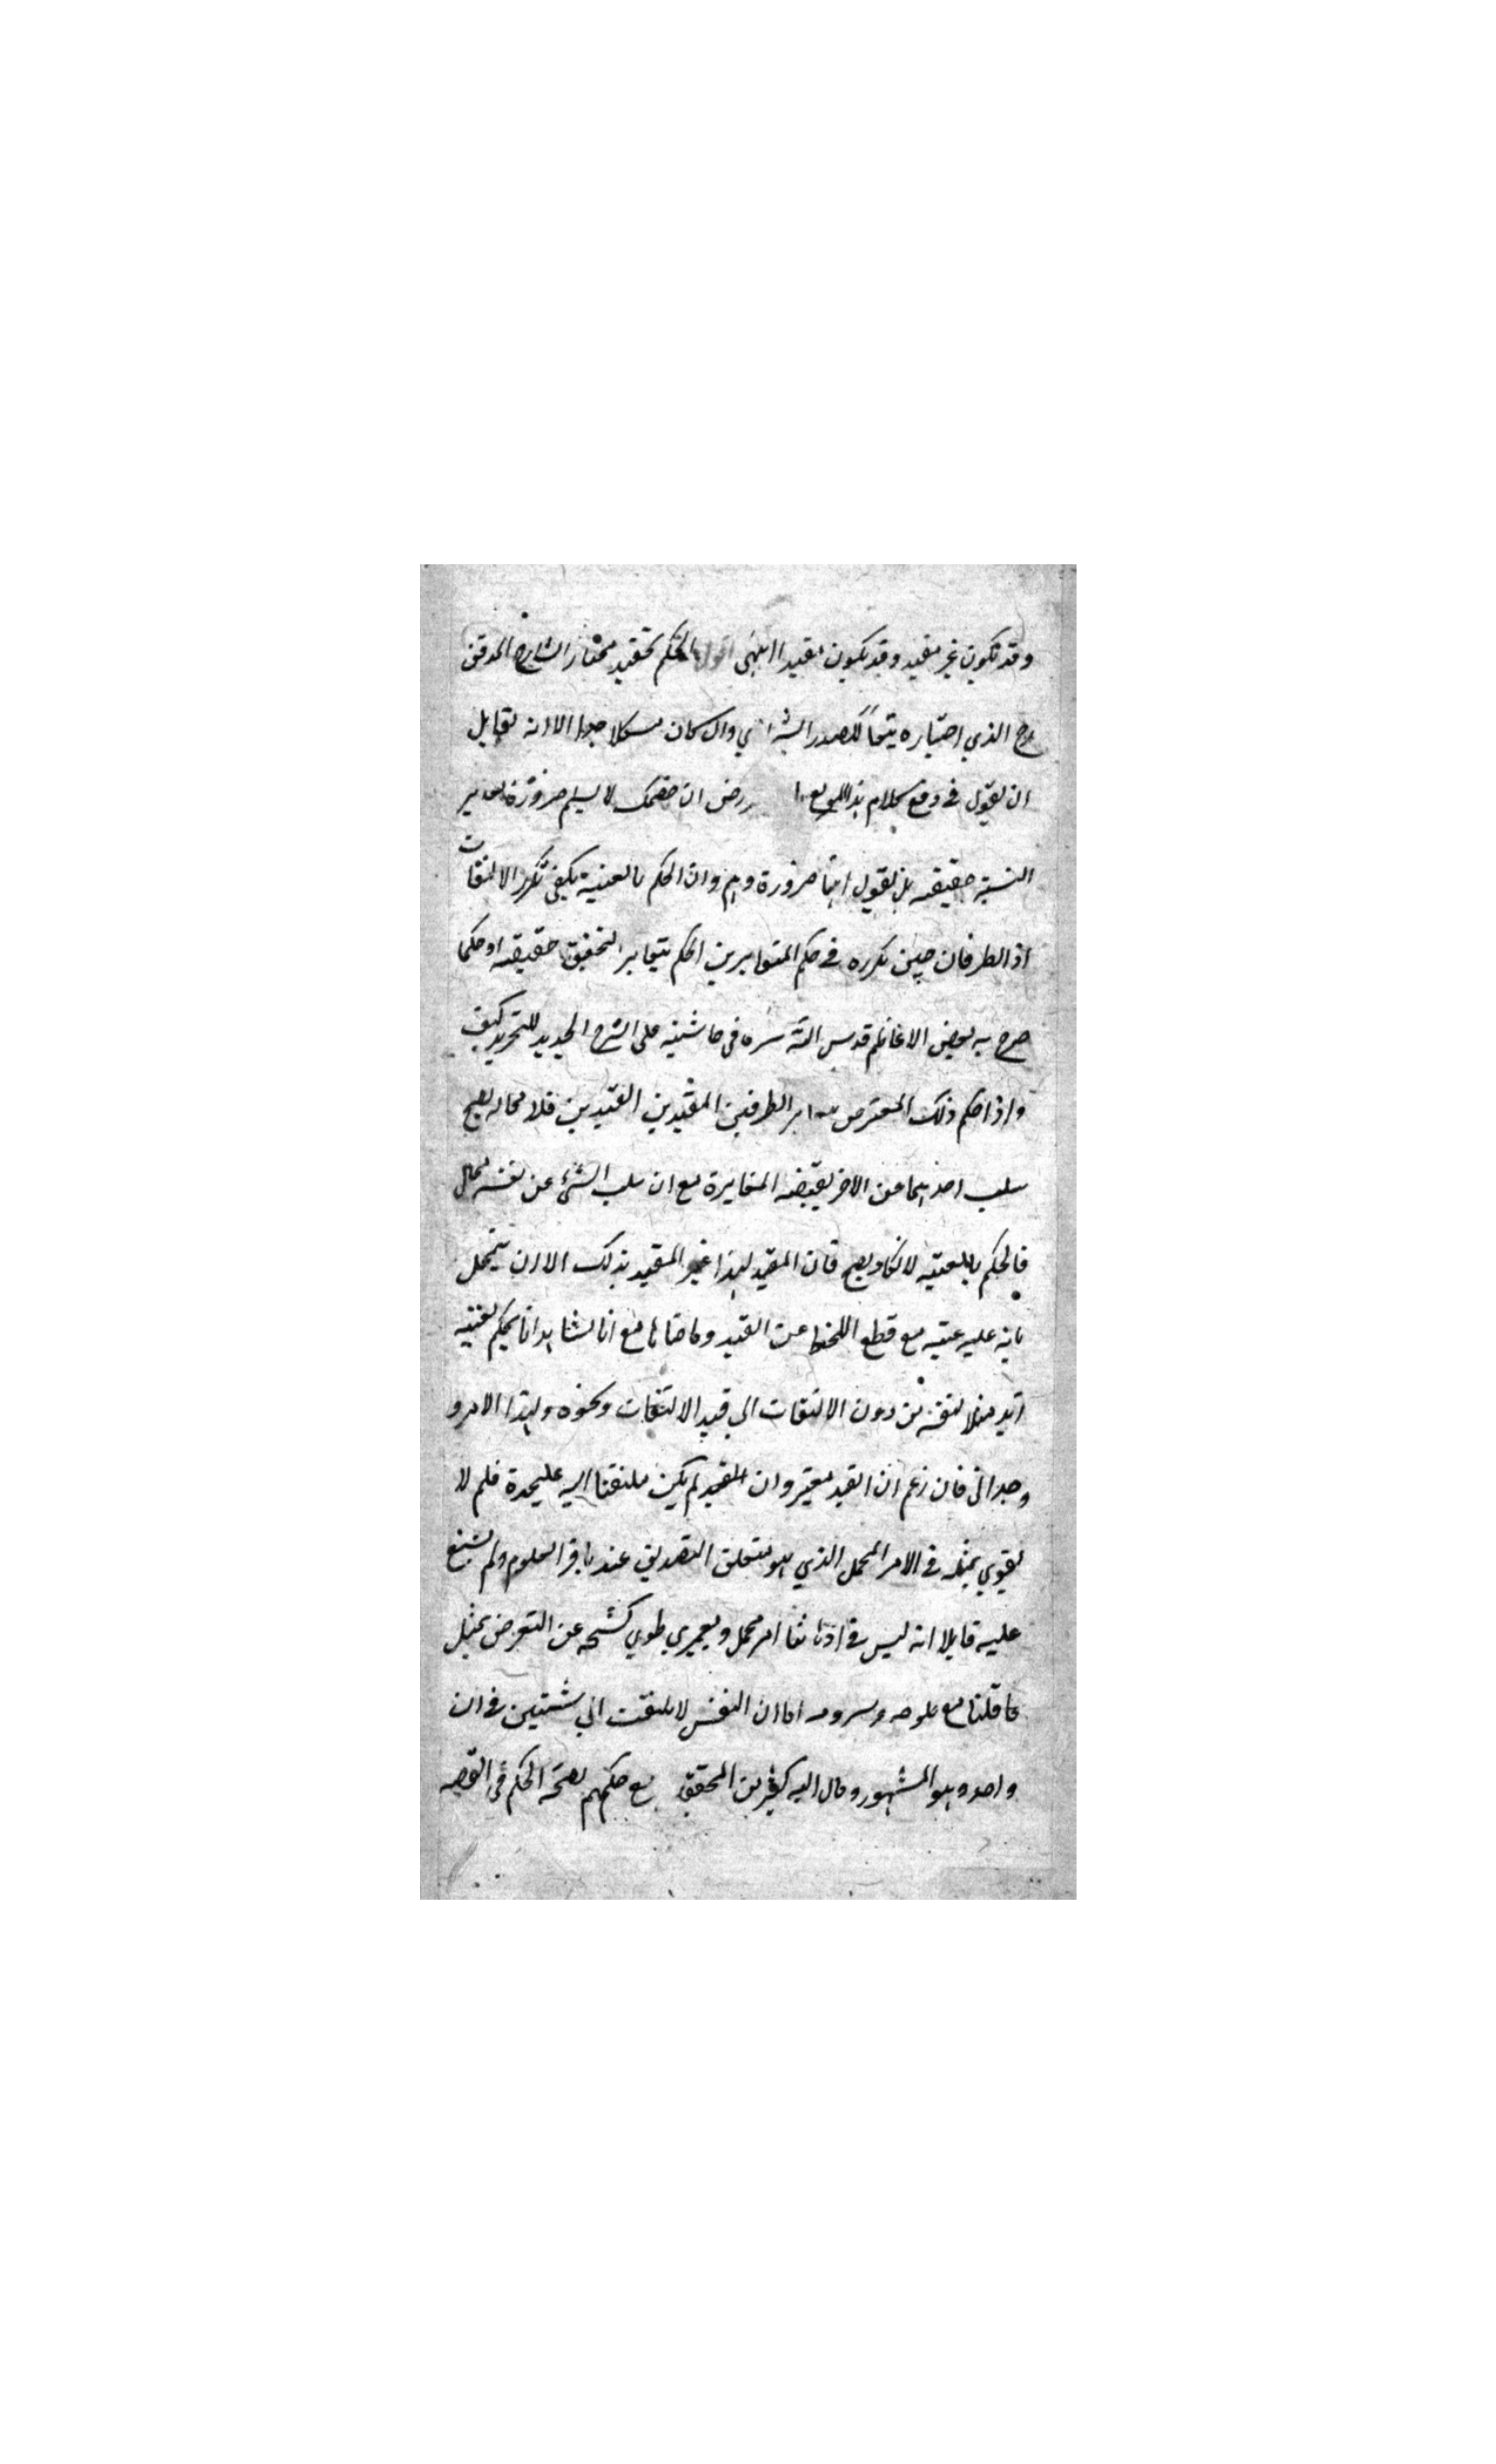 وقد تكون غير مقيد وقد تكون مقيدا انتهى اقول الحكم بتقييد مختار الشارح المدقق
ح الذي اختاره للصدر الشيرازي وان كان مشكلا جدا الا انه لقايل
ان يقول في دفع كلام ان خصمك لا يسلم ضرورة تغاير
النسبة حقيقة بل يقول انها ضرورة وهم وان الحكم بالعينية يكفي تكرر الالتفات
اذ الطرفان حين تكرره في حكم المتغايرين الحكم بتغاير التحقيق حقيقة او حكما
صرح به بعض الاعاظم قدس الله سره في حاشيته على الشرح الجديد للتجريد كيف
واذا حكم ذلك المعترض الطرفين المقيدين القيدين فلا محالة يصح
سلب احديهما عن الاخر بقضية المغايرة مع ان سلب الشئ عن نفسه محال
فالحكم بالعينية لا يكاد يصح فان المقيد لهذا غير المقيد بذلك الا ان يتمحل
بانه عليه عينه مع قطع اللحاظ عن القيد مع انا نشاهد انا نحكم بعينية
زيد مثلا لنفسه من دون الالتفات الى قيد الالتفات ونحوه وهذا الامر و
وجداني فان زعم ان القيد معتبر وان المقيد لم يكن ملتفتا اليه عليحدة فلم لا
يقوي بمثله في الامر المجمل الذي هو متعلق التصديق عند باقر العلوم ولم يشنع
عليه قايلا انه ليس في اذهاننا امر مجمل ولعمري طوى كشحه عن التعرض بمثل
ما قلنا مع اما ان النفس لا يلتفت الى شيئين في ان
واحد وهو المشهور ومال اليه كثير من المحققين مع حكمهم بصحة الحكم في القضية